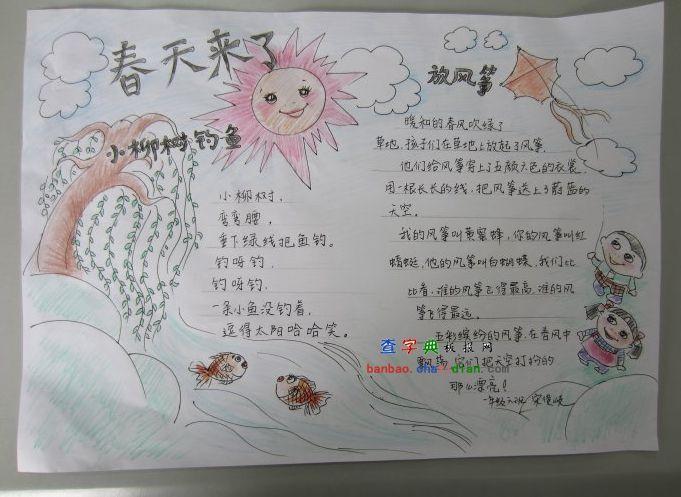 春天来了
小柳树钓鱼
小柳树，
弯弯腰，
垂下绿线把鱼钓。
钓呀钓，
钓呀钓，
一条小鱼没钓着，
逗得太阳哈哈笑。
放风筝
暖和的春风吹绿了
草地，孩子们在草地上放起了风筝。
他们给风筝穿上了五颜六色的衣裳，
用一根长长的线，把风筝送上了蔚蓝的
天空。
我的风筝叫黄蜜蜂，你的风筝叫红
蜻蜓，他的风筝叫白蝴蝶，我们比
比看，谁的风筝飞得最高，谁的风
筝飞得最远。
五彩缤纷的风筝，在春风中
飘荡，它们把天空打扮的
那么漂亮！
一年级六班
查字典板报网
banbao.chazidian.com